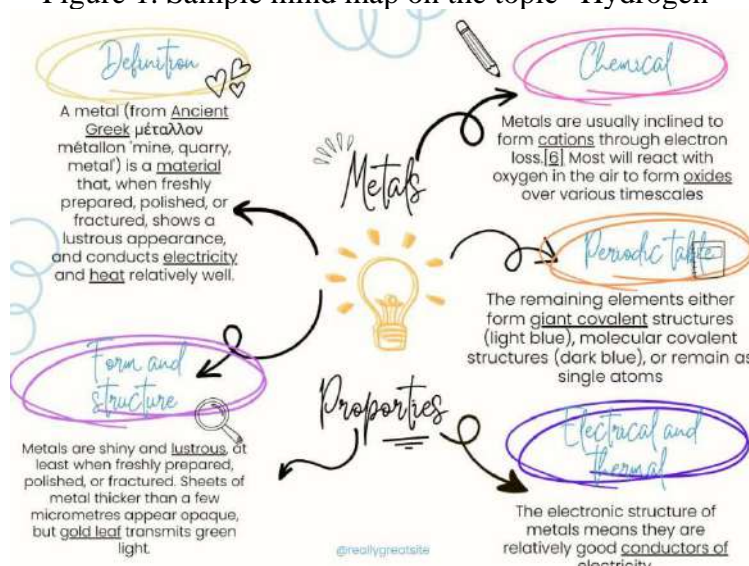 Figure 1. Sample mind map on the topic "Hydrogen"
Definition
A metal (from Ancient
Greek μέταλλον
métallon 'mine, quarry,
metal') is a material
that, when freshly
prepared, polished, or
fractured, shows a
lustrous appearance,
and conducts electricity
and heat relatively well.
Metals
Chemical
Metals are usually inclined to
form cations through electron
loss.[6] Most will react with
oxygen in the air to form oxides
over various timescales
Periodic table
The remaining elements either
form giant covalent structures
(light blue), molecular covalent
structures (dark blue), or remain as
single atoms
Form and
structure
Metals are shiny and lustrous, at
least when freshly prepared,
polished, or fractured. Sheets of
metal thicker than a few
micrometres appear opaque,
but gold leaf transmits green
light.
Proporties
Electrical and
thermal
The electronic structure of
metals means they are
relatively good conductors of
electricity
@reallygreatsite